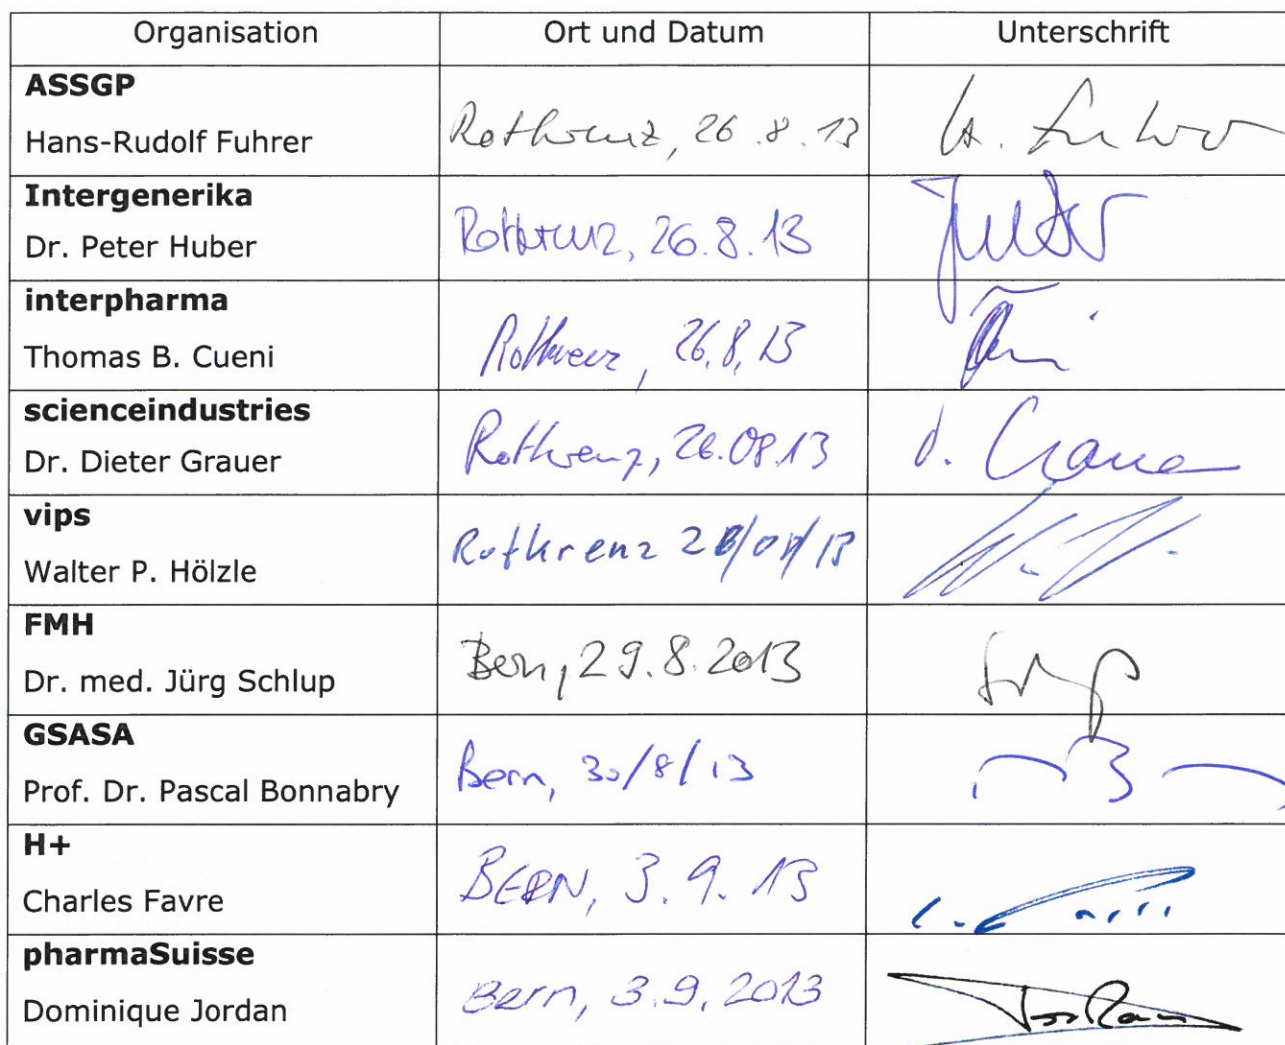 Organisation Ort und Datum Unterschrift
ASSGP
Hans-Rudolf Fuhrer Rotkreuz, 26.8.13
Intergenerika
Dr. Peter Huber Rotkreuz, 26.8.13
interpharma
Thomas B. Cueni Rotkreuz, 26.8.13
scienceindustries
Dr. Dieter Grauer Rotkreuz, 26.08.13 D. Grauer
vips
Walter P. Hölzle Rotkreuz
FMH
Dr. med. Jürg Schlup Bern, 29.8.2013
GSASA
Prof. Dr. Pascal Bonnabry Bern, 30/8/13
H+
Charles Favre BERN, 3.9.13
pharmaSuisse
Dominique Jordan Bern, 3.9.2013